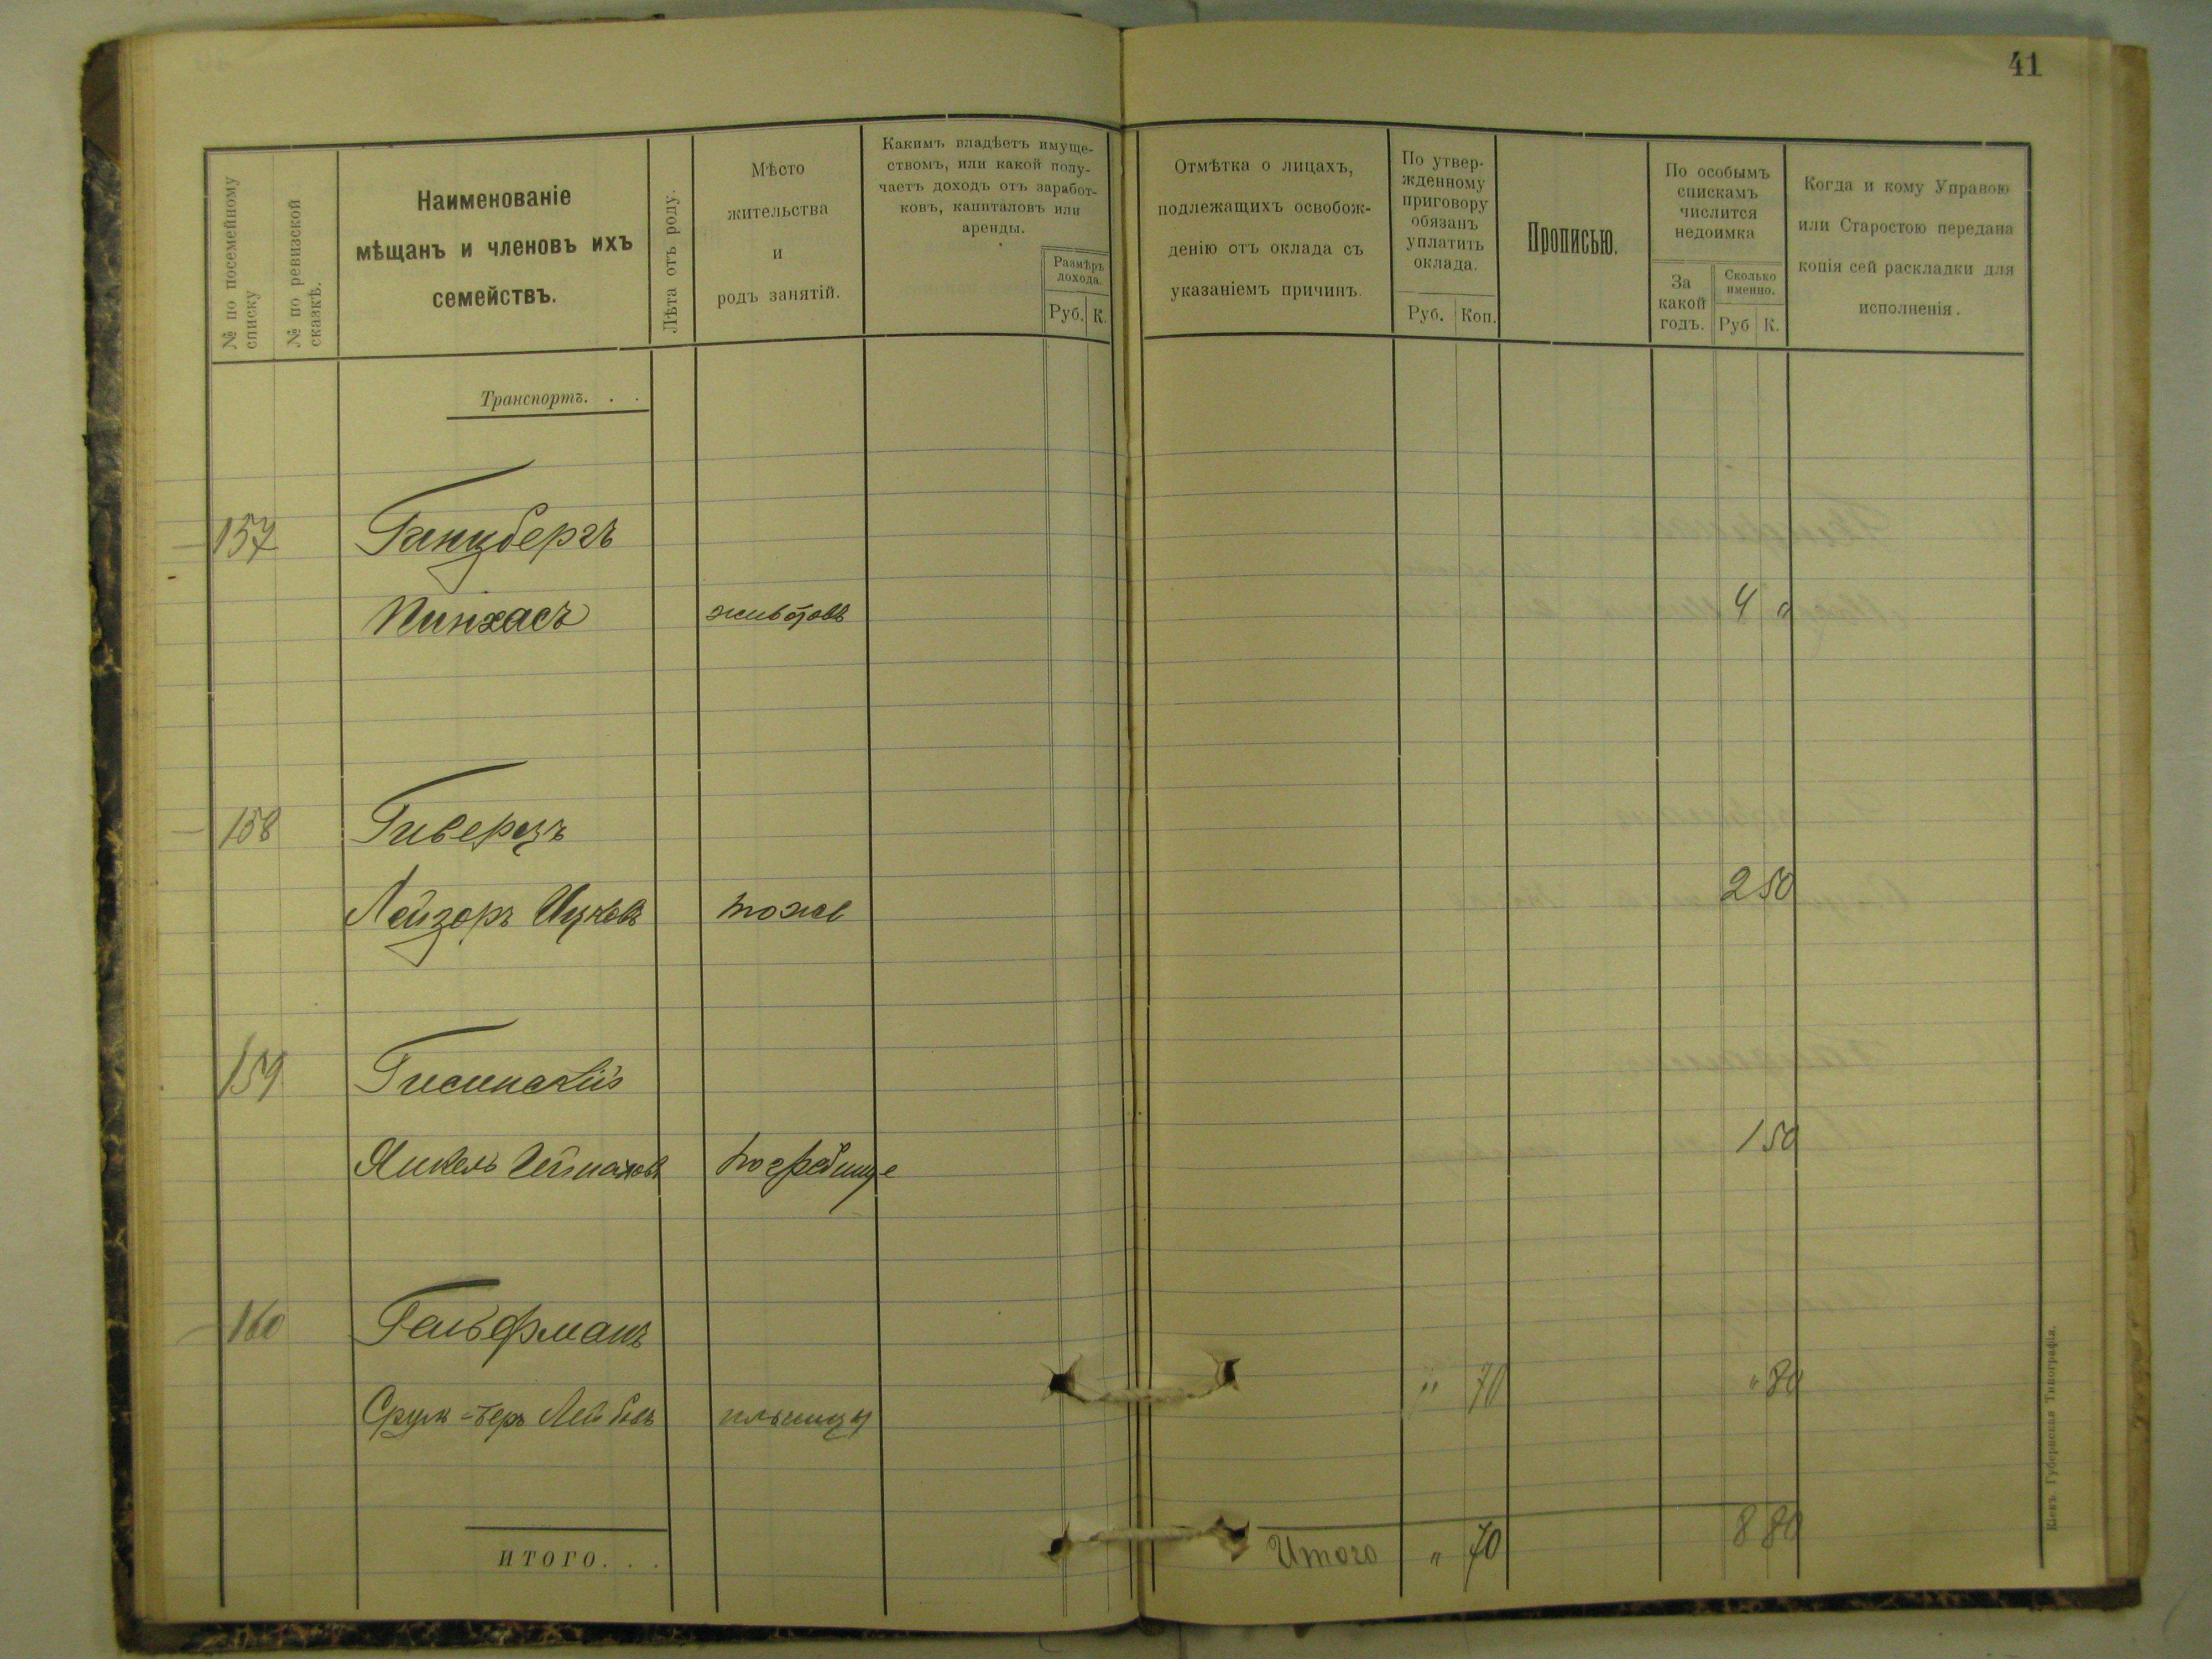 41
№ по посемейному списку
№ по ревизской сказкѣ.
Наименованіе
мѣщанъ и членовъ ихъ
семействъ.
Лѣта отъ роду.
Мѣсто
жительства
и
родъ занятій.
Какимъ владѣетъ имуще-
ствомъ, или какой полу-
чаетъ доходъ отъ заработ-
ковъ, капиталовъ или
аренды.
Размѣръ
дохода.
Руб. К.
Отмѣтка о лицахъ,
подлежащихъ освобож-
денію отъ оклада съ
указаніемъ причинъ.
По утвер-
жденному
приговору
обязанъ
уплатить
оклада.
Руб. Коп.
Прописью.
По особымъ
спискамъ
числится
недоимка
За
какой
годъ.
Сколько
именно.
Руб К.
Когда и кому Управою
или Старостою передана
копія сей раскладки для
исполненія.
Транспортъ. . .
157 Ганцбергъ
Пинхасъ животовъ 4 "
158 Гиверцъ
Лейзоръ Ицковъ тоже 2 50
159
Янкель погребище 1 50
160 Гальфманъ
Срул=Беръ Лейбовъ ильинцы " 70 " 80
ИТОГО. . .
Итого " 70 8 80
Кіевъ. Губернская Типографія.